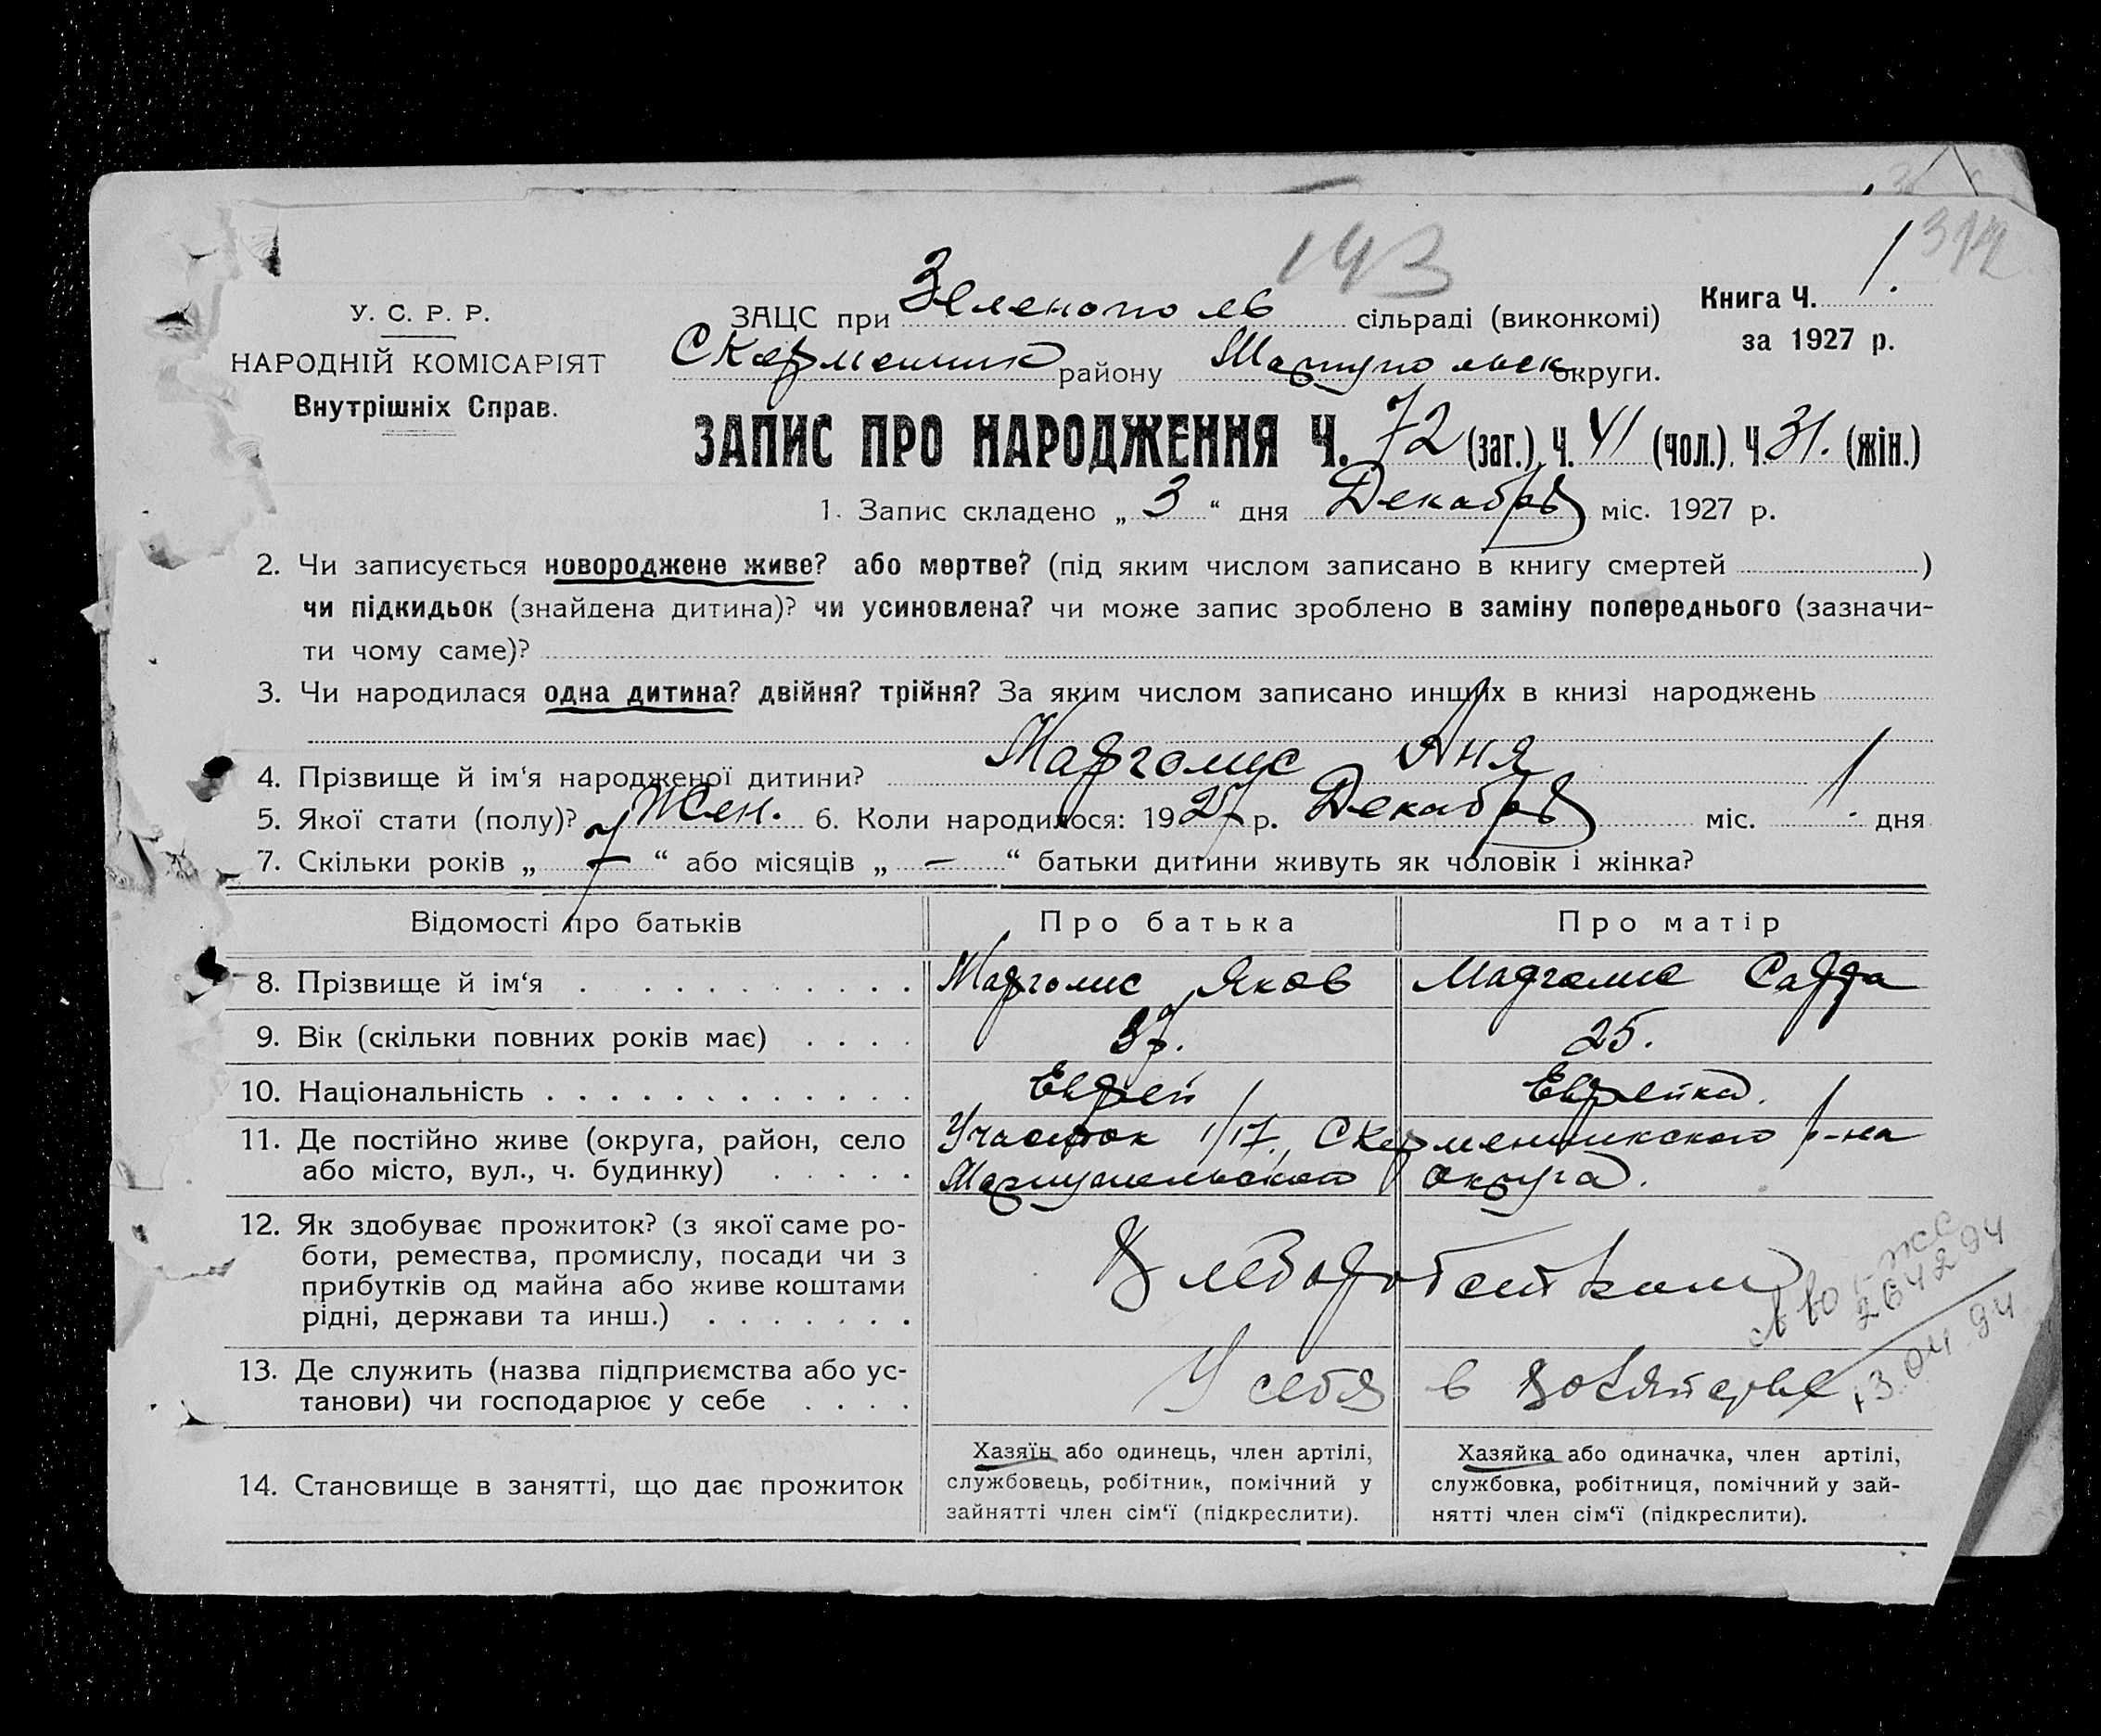 143
312
У. С. Р. Р.
НАРОДНІЙ КОМІСАРІЯТ
Внутрішніх Справ.
ЗАЦС при Зеленополь сільраді (виконкомі)
Книга Ч. 1.
за 1927 р.
С Керменчик району Мариупольск округи.
ЗАПИС ПРО НАРОДЖЕННЯ Ч. 72 (заг.), Ч. 41 (чол.), Ч. 31. (жін.)
1. Запис складено „ 3 “ дня Декабря міс. 1927 р.
2. Чи записується новороджене живе? або мертве? (під яким числом записано в книгу смертей )
чи підкидьок (знайдена дитина)? чи усиновлена? чи може запис зроблено в заміну попереднього (зазначи-
ти чому саме)?
3. Чи народилася одна дитина? двійня? трійня? За яким числом записано инших в книзі народжень
4. Прізвище й ім‘я народженої дитини? Марголис Аня
5. Якої стати (полу)? Жен. 6. Коли народилося: 1927 р. Декабря міс. 1. дня
7. Скільки років „ 7 “ або місяців „ — “ батьки дитини живуть як чоловік і жінка?
Відомості про батьків Про батька Про матір
8. Прізвище й ім‘я Марголис Яков Марголис Сарра
9. Вік (скільки повних років має) 37. 25.
10. Національність Еврей Еврейка.
11. Де постійно живе (округа, район, село Участок 1/17, С Керменчикского р-на
або місто, вул., ч. будинку) Мариупольского округа.
12. Як здобуває прожиток? (з якої саме ро-
боти, ремества, промислу, посади чи з
прибутків од майна або живе коштами
рідні, держави та инш.) Хлебопашеством
264294
13.04.94
13. Де служить (назва підприємства або ус- У себя в хозяйстве
танови) чи господарює у себе
14. Становище в занятті, що дає прожиток
Хазяїн або одинець, член артілі,
службовець, робітник, помічний у
зайнятті член сім‘ї (підкреслити).
Хазяйка або одиначка, член артілі,
службовка, робітниця, помічний у зай-
нятті член сім‘ї (підкреслити).